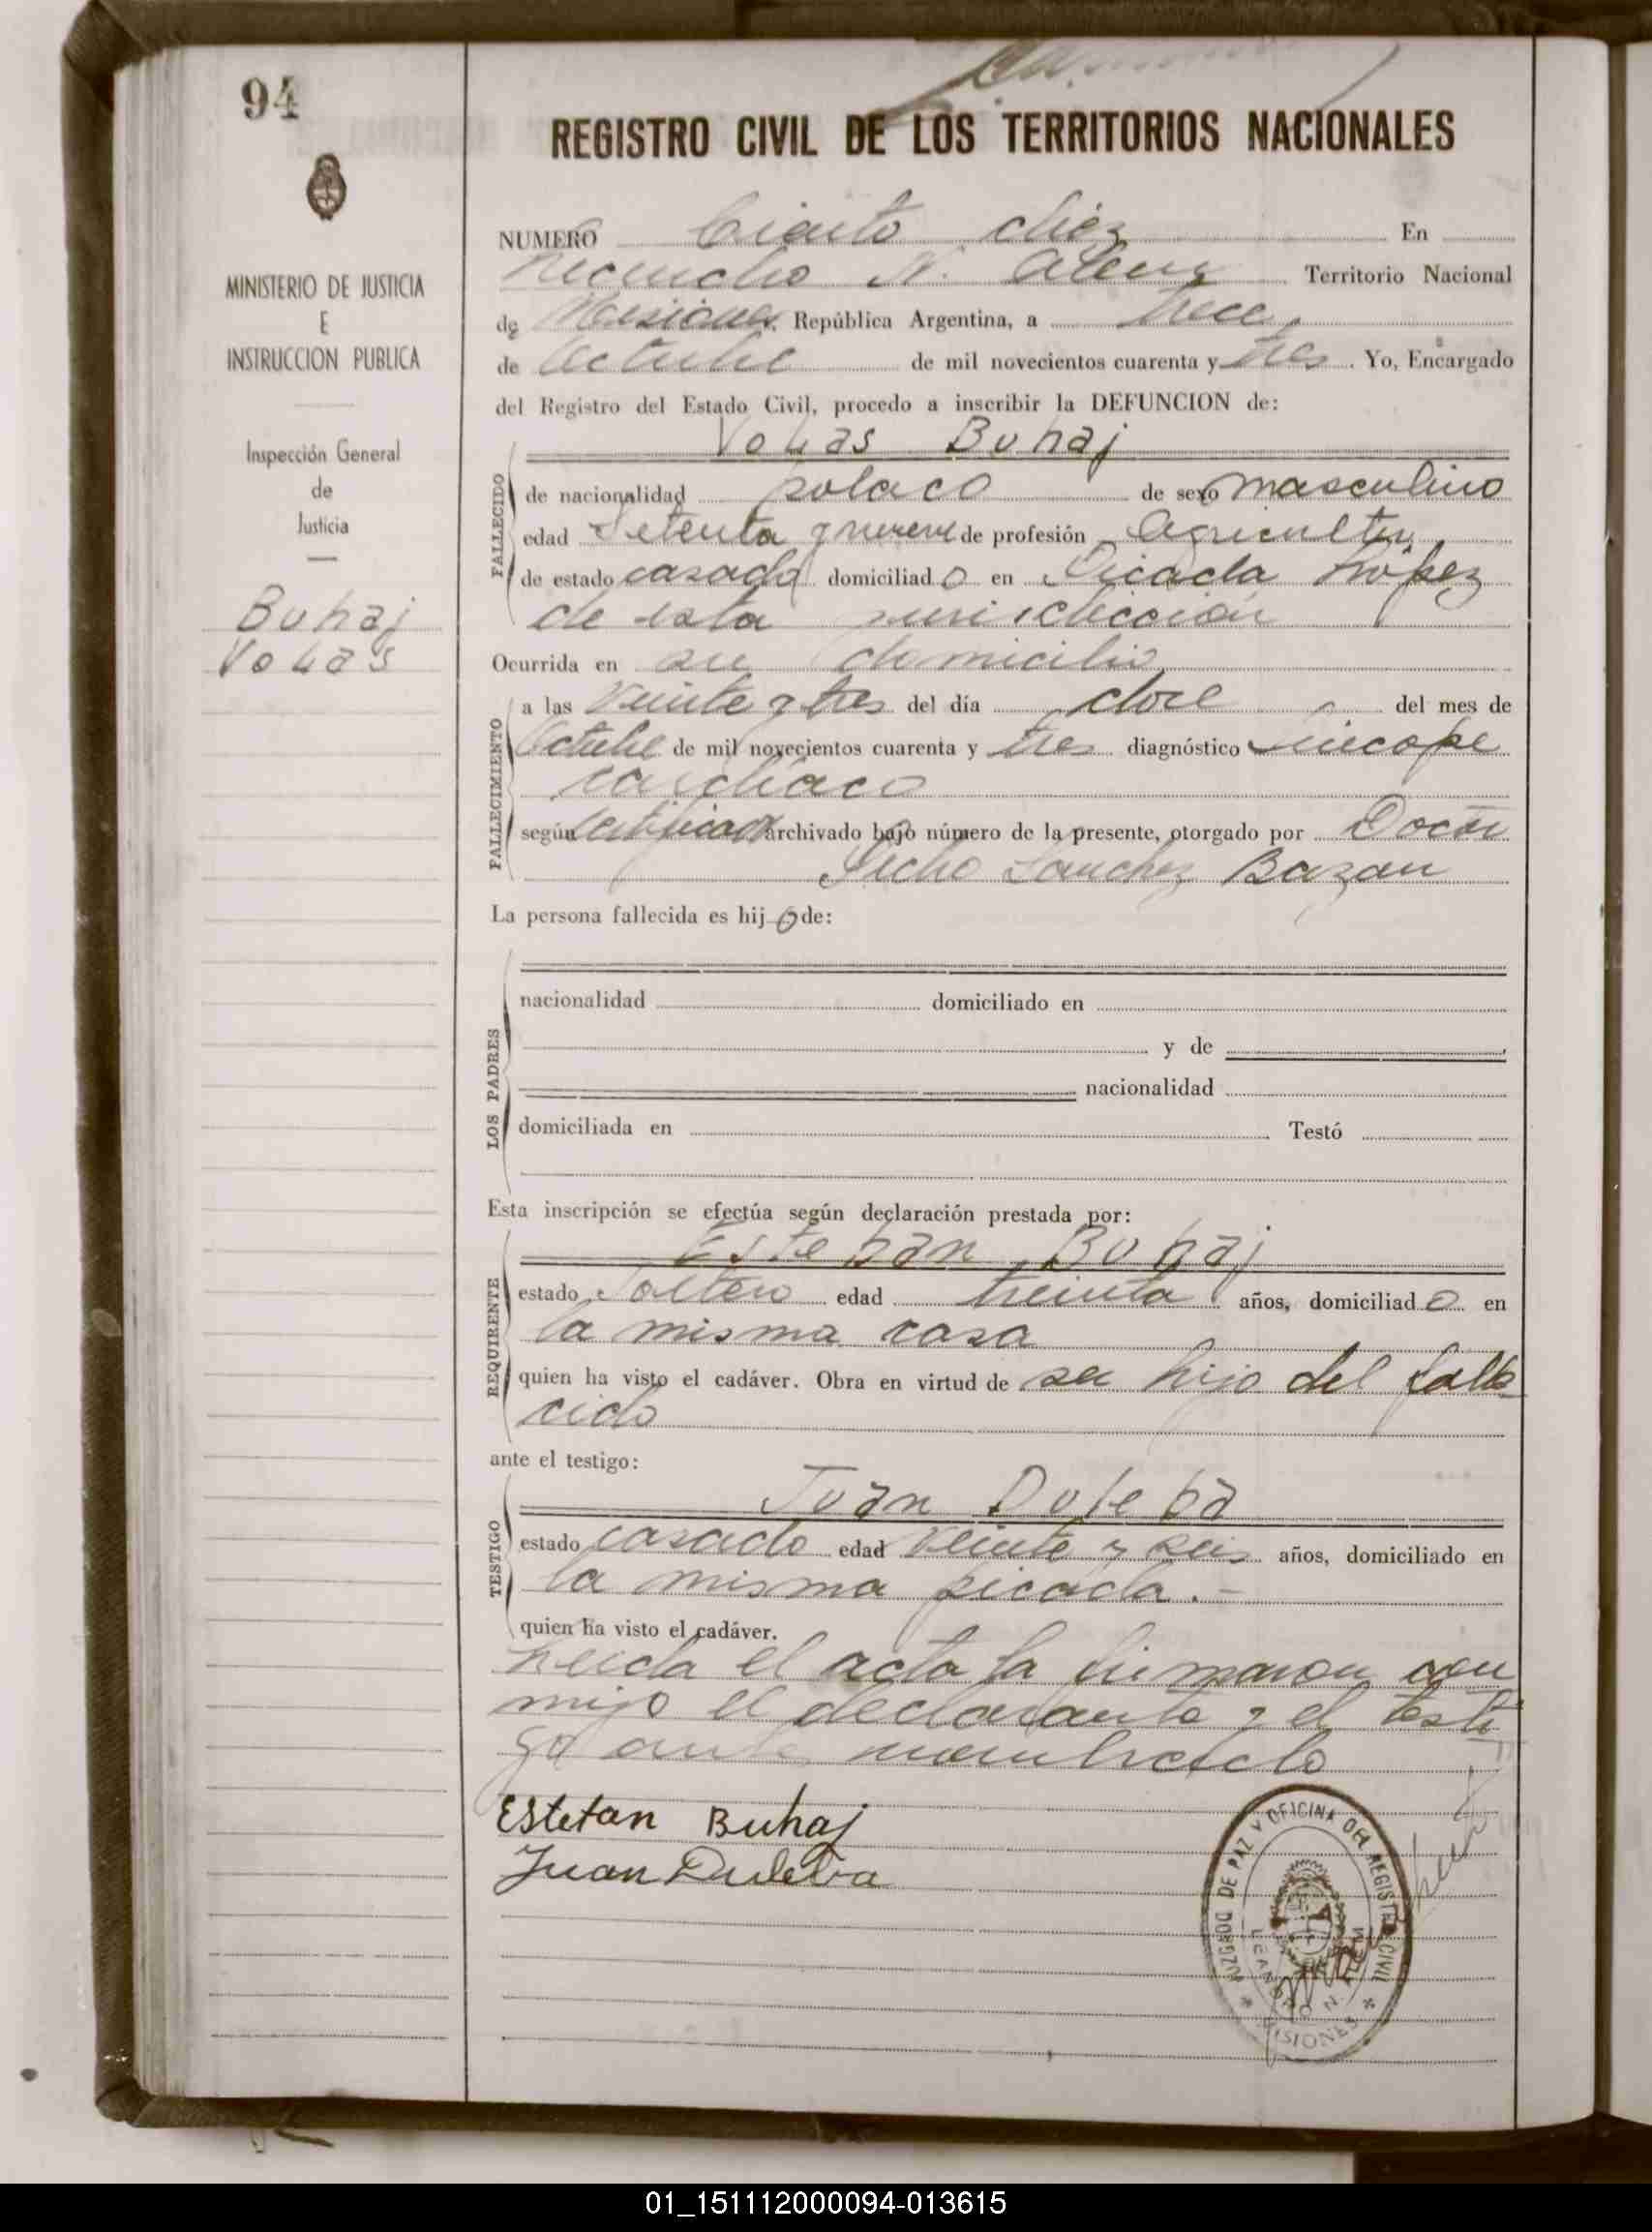 94
REGISTRO CIVIL DE LOS TERRITORIOS NACIONALES
MINISTERIO DE JUSTICIA
E
INSTRUCCION PUBLICA
Inspección General
de
Justicia
Buhaj
NUMERO Ciento diez En
Leandro N. Alem Territorio Nacional
de Misiones, República Argentina, a trece
de Octubre de mil novecientos cuarenta y tres. Yo, Encargado
del Registro del Estado Civil, procedo a inscribir la DEFUNCION de:
Buhaj
FALLECIDO
de nacionalidad polaco de sexo masculino
edad Setenta y nueve de profesión Agricultor
de estado casado domiciliado en Picada López
de esta jurisdicción
Ocurrida en su domicilio
FALLECIMIENTO
a las Veinte y tres del día doce del mes de
Octubre de mil novecientos cuarenta y tres diagnóstico Síncope
cardíaco
según certificado archivado bajo número de la presente, otorgado por Doctor
Sanchez Bazan
La persona fallecida es hijo de:
LOS PADRES
nacionalidad domiciliado en
y de
nacionalidad
domiciliada en Testó
Esta inscripción se efectúa según declaración prestada por:
Esteban Buhaj
REQUIRENTE
estado Soltero edad treinta años, domiciliado en
la misma casa
quien ha visto el cadáver. Obra en virtud de ser hijo del falle
cido
ante el testigo:
Juan Duleba
TESTIGO
estado casado edad Veinte y seis años, domiciliado en
la misma picada.-
quien ha visto el cadáver.
Leida el acta la firmaron con
migo el declarante y el testi
go ante nombrado
Estefan Buhaj
Juan Duleba
JUZGADO DE PAZ Y OFICINA DEL REGISTRO CIVIL
LEANDRO N. ALEM
MISIONES
01_151112000094-013615